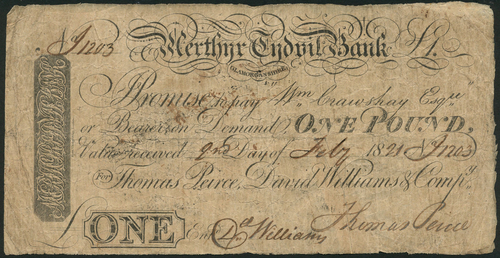 J1203 Merthyr Tydvil Bank £1.
GLAMORGANSHIRE
Promise to pay Wm Crawshay Esqre
or Bearer on Demand ONE POUND,
Value received 2nd Day of Feby 1821 J1203
For Thomas Peirce, David Williams & Compy.
ONE Entd Dd Williams Thomas Peirce